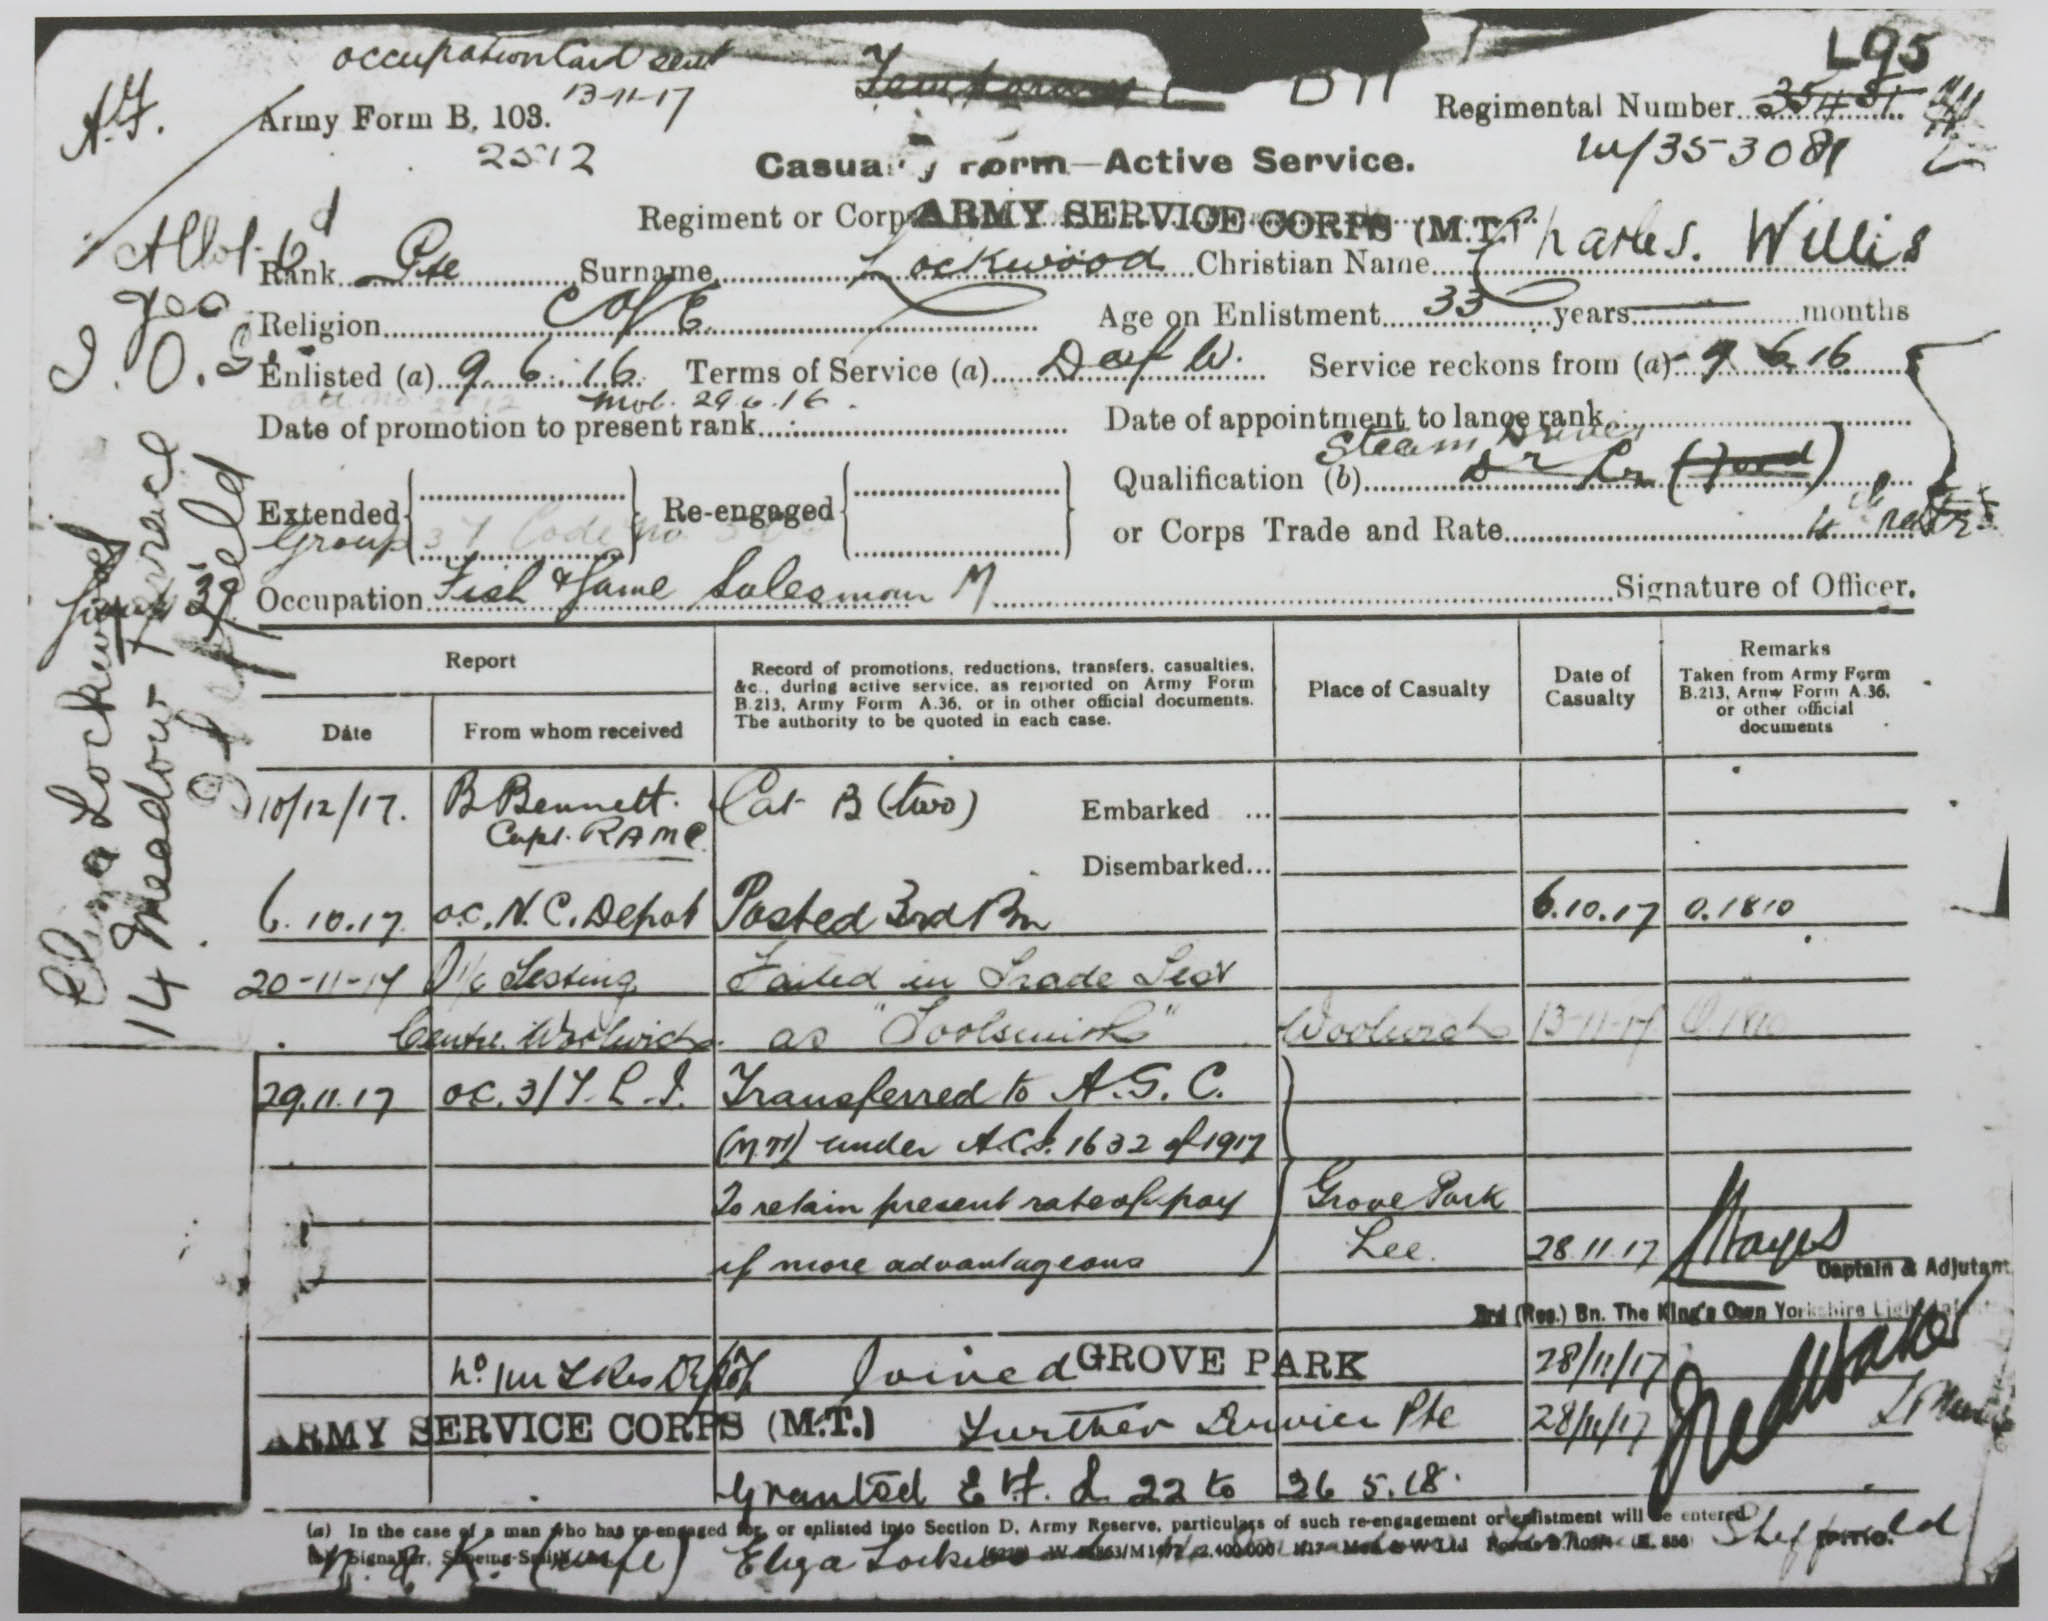 L95
occupation Card sent
13-11-17
A.F.
Army Form B. 103.
2512
Regimental Number
M/353081
Casualty Form—Active Service.
Regiment or Corps ARMY SERVICE CORPS (M.T.)
Rank Pte Surname Lockwood Christian Name Charles. Willis
Religion C of E. Age on Enlistment 33 years — months
Enlisted (a) 9. 6. 16. Terms of Service (a) D of W. Service reckons from (a) 9 6 16
Mob. 29.6.16.
Date of promotion to present rank Date of appointment to lance rank
Steam Driver
Extended Re-engaged Qualification (b) Dr Lr (Ford)
Group 37 Code No
or Corps Trade and Rate 4th Rate
Occupation Fish & Game Salesman M Signature of Officer.
Allot. 6d
Yes
Eliza Lockwood
14 Meadow Terrace
Sheffield
Report
Date
From whom received
Record of promotions, reductions, transfers, casualties, &c., during active service, as reported on Army Form B.213, Army Form A.36, or in other official documents. The authority to be quoted in each case.
Place of Casualty
Date of Casualty
Remarks
Taken from Army Form B.213, Army Form A.36, or other official documents
10/12/17. B Bennett. Cat B (two) Embarked ...
Capt. RAMC.
Disembarked...
6.10.17 O.C. N.C. Depot Posted 3rd Bn 6.10.17 O.1810
20-11-17 O i/c Testing Failed in Trade Test
Centre. Woolwich as "Toolsmith" Woolwich 13-11-17 O.1810
29.11.17 O.C. 3/Y.L.I. Transferred to A.S.C.
(M.T.) under A.C.I. 1632 of 1917
To retain present rate of pay Grove Park
if more advantageous Lee. 28.11.17 Hayes
Captain & Adjutant
3rd (Res.) Bn. The King's Own Yorkshire Light Infantry
Joined GROVE PARK 28/11/17
ARMY SERVICE CORPS (M.T.) Further Service Pte 28/11/17
Granted 22 to 26 5.18.
(a) In the case of a man who has re-engaged for, or enlisted into Section D, Army Reserve, particulars of such re-engagement or enlistment will be entered.
(b) Signaller, Shoeing-Smith
N. of K. (wife) Eliza Lockwood Sheffield
[P.T.O.